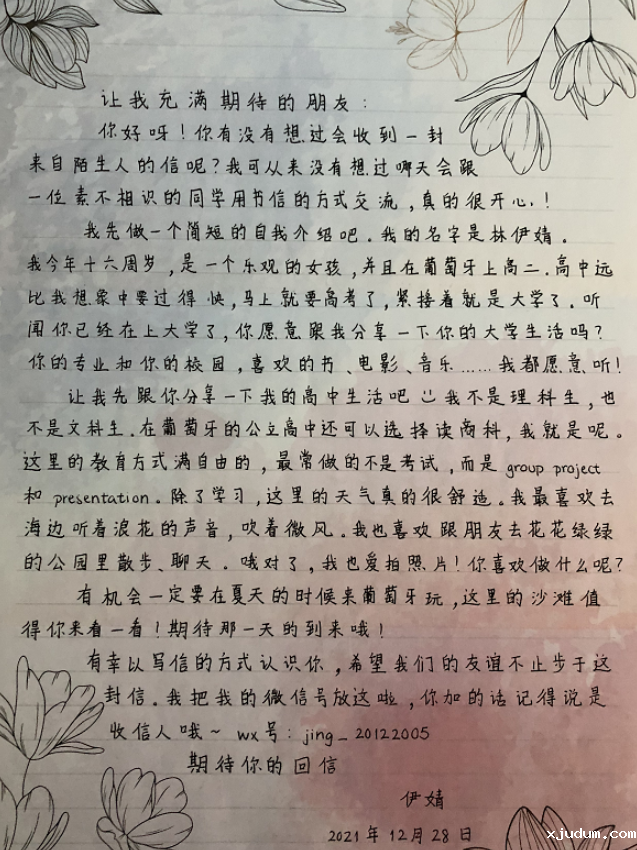 让我充满期待的朋友：
你好呀！你有没有想过会收到一封
来自陌生人的信呢？我可从来没有想过哪天会跟
一位素不相识的同学用书信的方式交流，真的很开心！
我先做一个简短的自我介绍吧．我的名字是林伊婧。
我今年十六周岁，是一个乐观的女孩，并且在葡萄牙上高二．高中远
比我想象中要过得快，马上就要高考了，紧接着就是大学了．听
闻你已经在上大学了，你愿意跟我分享一下你的大学生活吗？
你的专业和你的校园，喜欢的书、电影、音乐……我都愿意听！
让我先跟你分享一下我的高中生活吧 我不是理科生，也
不是文科生．在葡萄牙的公立高中还可以选择读商科，我就是呢。
这里的教育方式满自由的，最常做的不是考试，而是 group project
和 presentation。除了学习，这里的天气真的很舒适。我最喜欢去
海边听着浪花的声音，吹着微风。我也喜欢跟朋友去花花绿绿
的公园里散步、聊天。哦对了，我也爱拍照片！你喜欢做什么呢？
有机会一定要在夏天的时候来葡萄牙玩，这里的沙滩值
得你来看一看！期待那一天的到来哦！
有幸以写信的方式认识你，希望我们的友谊不止步于这
封信．我把我的微信号放这啦，你加的话记得说是
收信人哦~ wx号：jing_20122005
期待你的回信
伊婧
2021年12月28日
xjudum.com